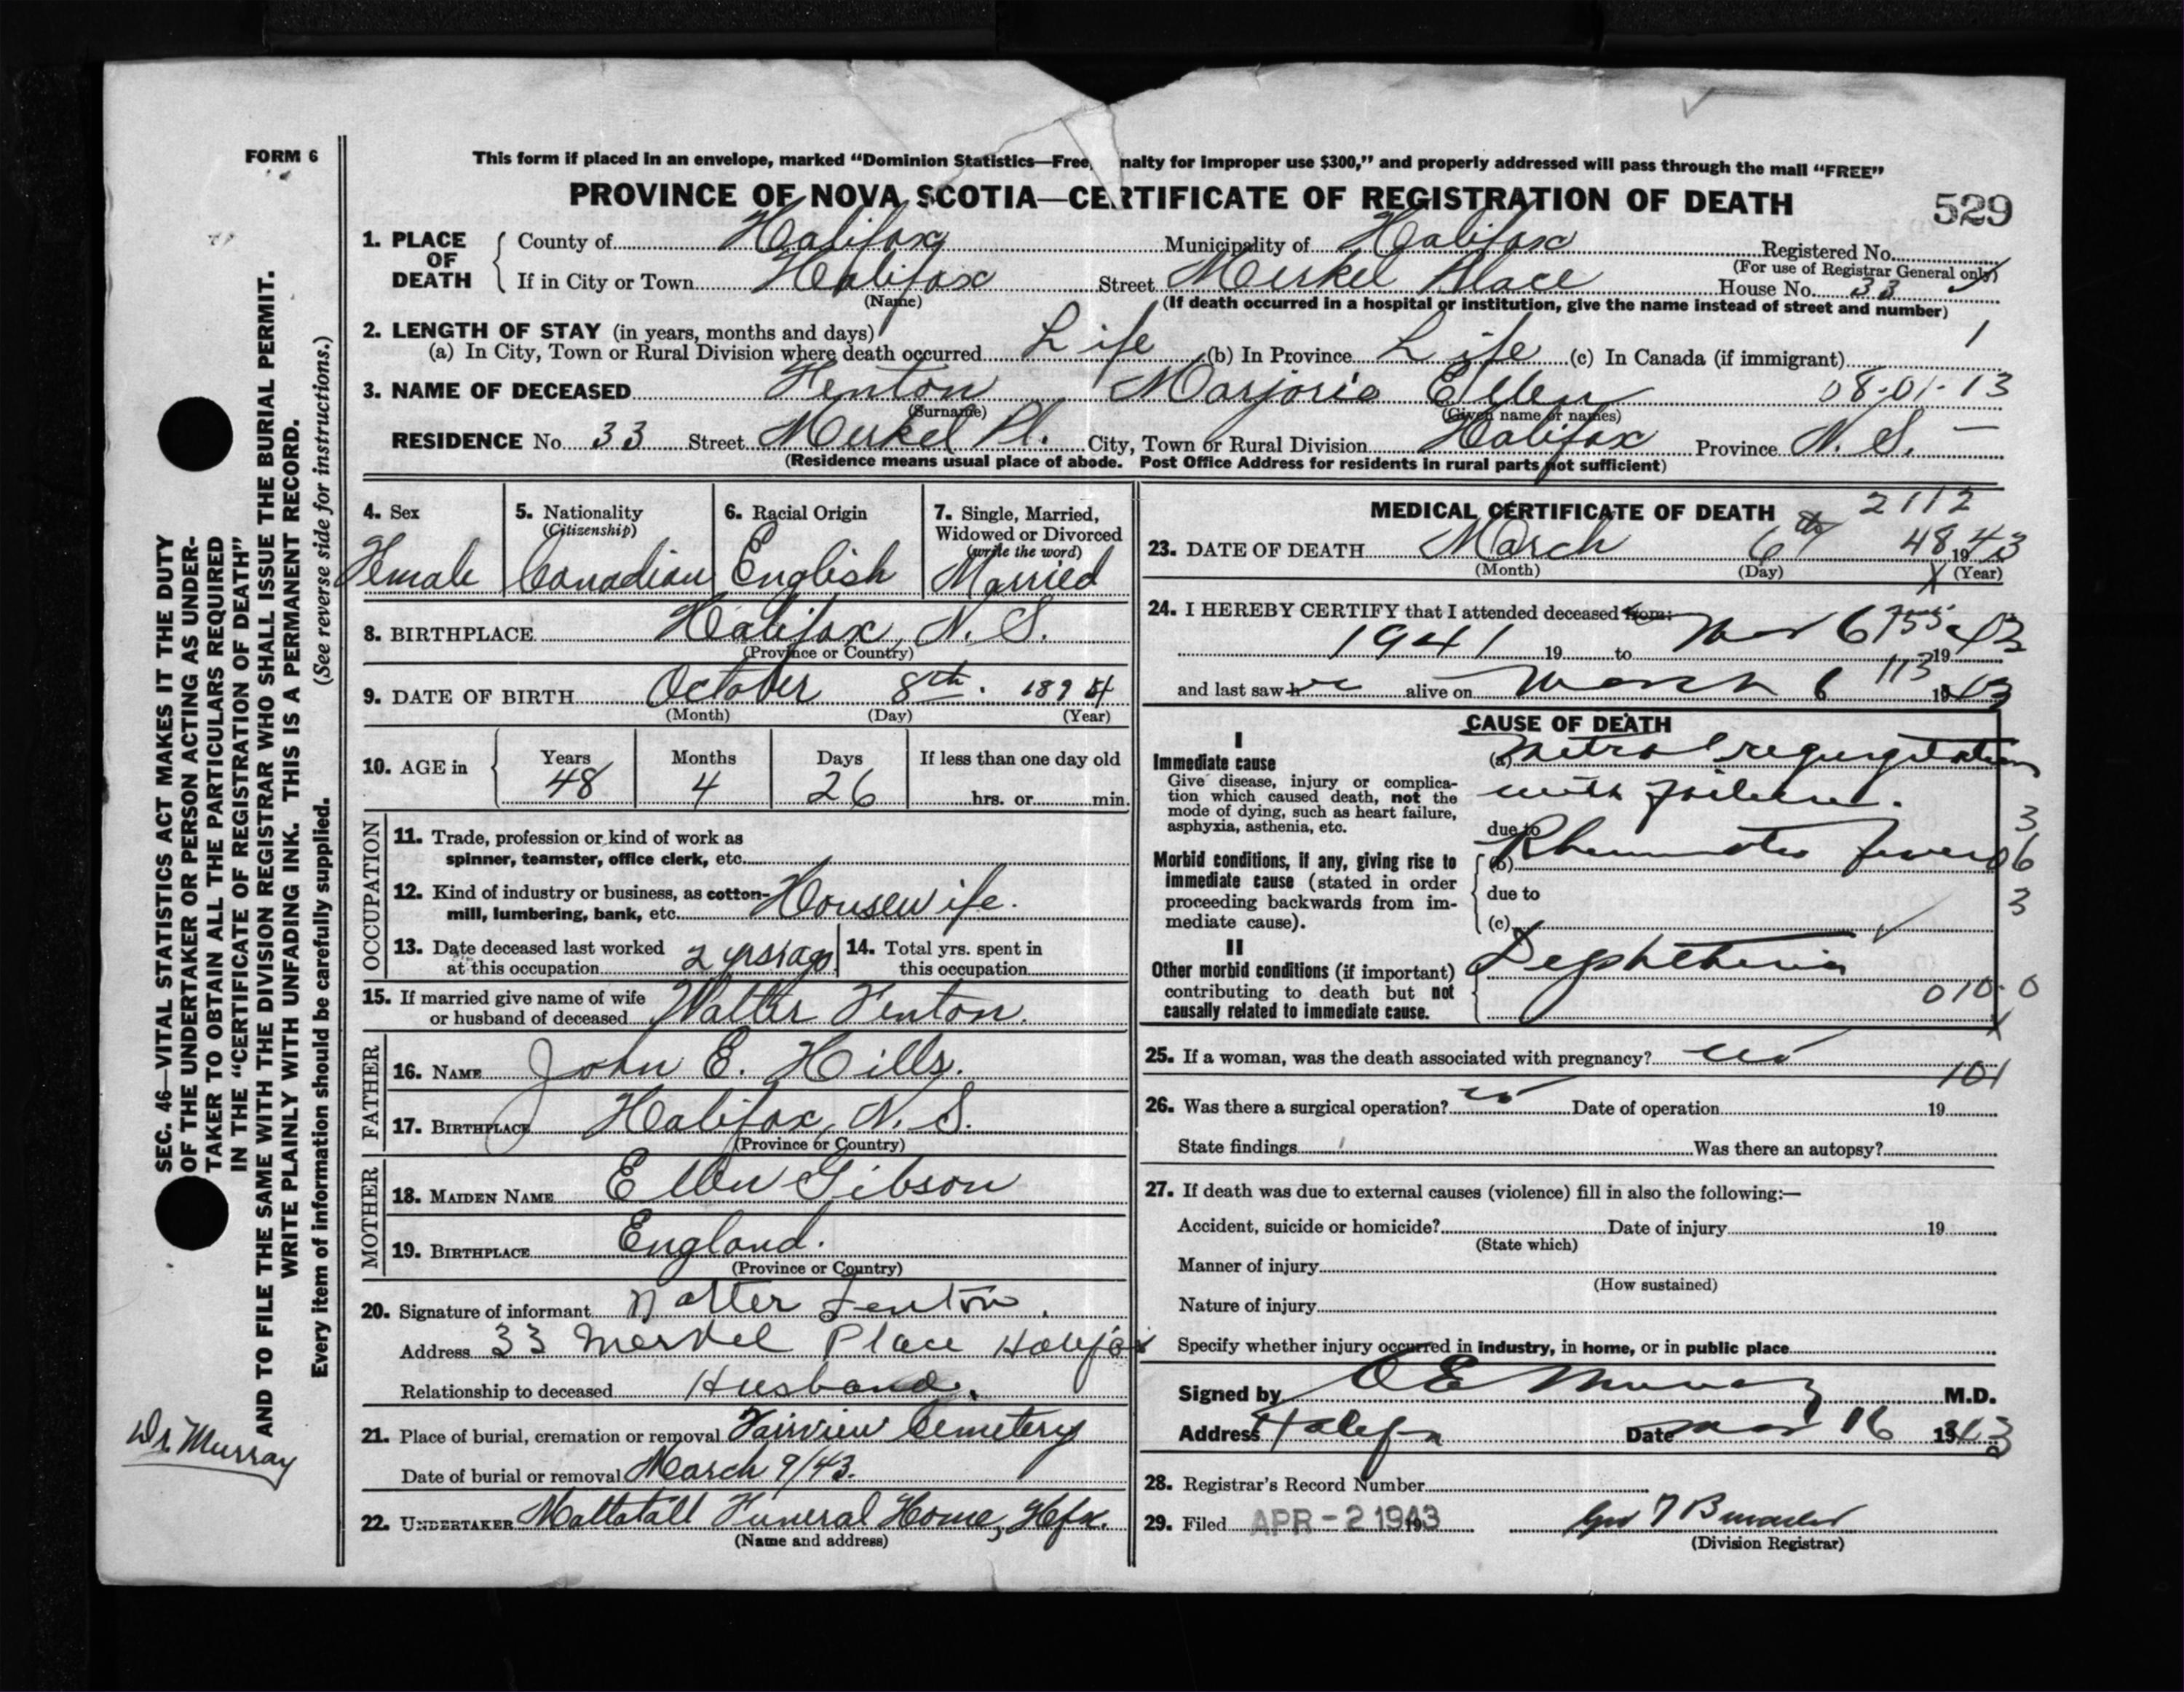 FORM 6
This form if placed in an envelope, marked “Dominion Statistics—Free, nalty for improper use $300,” and properly addressed will pass through the mail “FREE”
PROVINCE OF NOVA SCOTIA—CERTIFICATE OF REGISTRATION OF DEATH
529
1. PLACE OF DEATH
County of Halifax Municipality of Halifax Registered No.
(For use of Registrar General only)
If in City or Town Halifax Street Merkel Place House No. 33
(Name) (If death occurred in a hospital or institution, give the name instead of street and number)
2. LENGTH OF STAY (in years, months and days) 1
(a) In City, Town or Rural Division where death occurred Life (b) In Province Life (c) In Canada (if immigrant)
3. NAME OF DECEASED Fenton Marjorie Ellen 08-01-13
(Surname) (Given name or names)
RESIDENCE No. 33 Street Merkel Pl. City, Town or Rural Division Halifax Province N. S. —
(Residence means usual place of abode. Post Office Address for residents in rural parts not sufficient)
4. Sex
Female
5. Nationality
(Citizenship)
Canadian
6. Racial Origin
English
7. Single, Married,
Widowed or Divorced
(write the word)
Married
8. BIRTHPLACE Halifax, N. S.
(Province or Country)
9. DATE OF BIRTH October 8th. 1894
(Month) (Day) (Year)
10. AGE in
Years 48
Months 4
Days 26
If less than one day old
hrs. or min.
OCCUPATION
11. Trade, profession or kind of work as
spinner, teamster, office clerk, etc.
12. Kind of industry or business, as cotton-
mill, lumbering, bank, etc. Housewife.
13. Date deceased last worked
at this occupation 2 yrs ago
14. Total yrs. spent in
this occupation
15. If married give name of wife
or husband of deceased Walter Fenton.
FATHER
16. NAME John E. Hills.
17. BIRTHPLACE Halifax, N. S.
(Province or Country)
MOTHER
18. MAIDEN NAME Ellen Gibson
19. BIRTHPLACE England.
(Province or Country)
20. Signature of informant Walter Fenton.
Address 33 Merkel Place Halifax
Relationship to deceased Husband.
21. Place of burial, cremation or removal Fairview Cemetery
Date of burial or removal March 9/43.
22. UNDERTAKER Mattatall Funeral Home, Hfx.
(Name and address)
MEDICAL CERTIFICATE OF DEATH 2112
23. DATE OF DEATH March 6th 48 1943
(Month) (Day) (Year)
24. I HEREBY CERTIFY that I attended deceased from:
1941 19 to Mar 6 19 43
and last saw her alive on March 6 113 1943
CAUSE OF DEATH
I
Immediate cause
Give disease, injury or complica-
tion which caused death, not the
mode of dying, such as heart failure,
asphyxia, asthenia, etc.
(a) Mitral regurgitation
with failure.
due to
Morbid conditions, if any, giving rise to
immediate cause (stated in order
proceeding backwards from im-
mediate cause).
(b) Rheumatic fever
due to
(c)
3
06
3
II
Other morbid conditions (if important)
contributing to death but not
causally related to immediate cause.
Diphtheria
010-0
25. If a woman, was the death associated with pregnancy? no
101
26. Was there a surgical operation? no Date of operation 19
State findings Was there an autopsy?
27. If death was due to external causes (violence) fill in also the following:—
Accident, suicide or homicide? Date of injury 19
(State which)
Manner of injury
(How sustained)
Nature of injury
Specify whether injury occurred in industry, in home, or in public place
Signed by Murray M.D.
Address Halifax Date Mar 16 1943
28. Registrar’s Record Number
29. Filed APR - 2 1943
(Division Registrar)
SEC. 46—VITAL STATISTICS ACT MAKES IT THE DUTY
OF THE UNDERTAKER OR PERSON ACTING AS UNDER-
TAKER TO OBTAIN ALL THE PARTICULARS REQUIRED
IN THE “CERTIFICATE OF REGISTRATION OF DEATH”
AND TO FILE THE SAME WITH THE DIVISION REGISTRAR WHO SHALL ISSUE THE BURIAL PERMIT.
WRITE PLAINLY WITH UNFADING INK. THIS IS A PERMANENT RECORD.
Every item of information should be carefully supplied. (See reverse side for instructions.)
Dr. Murray